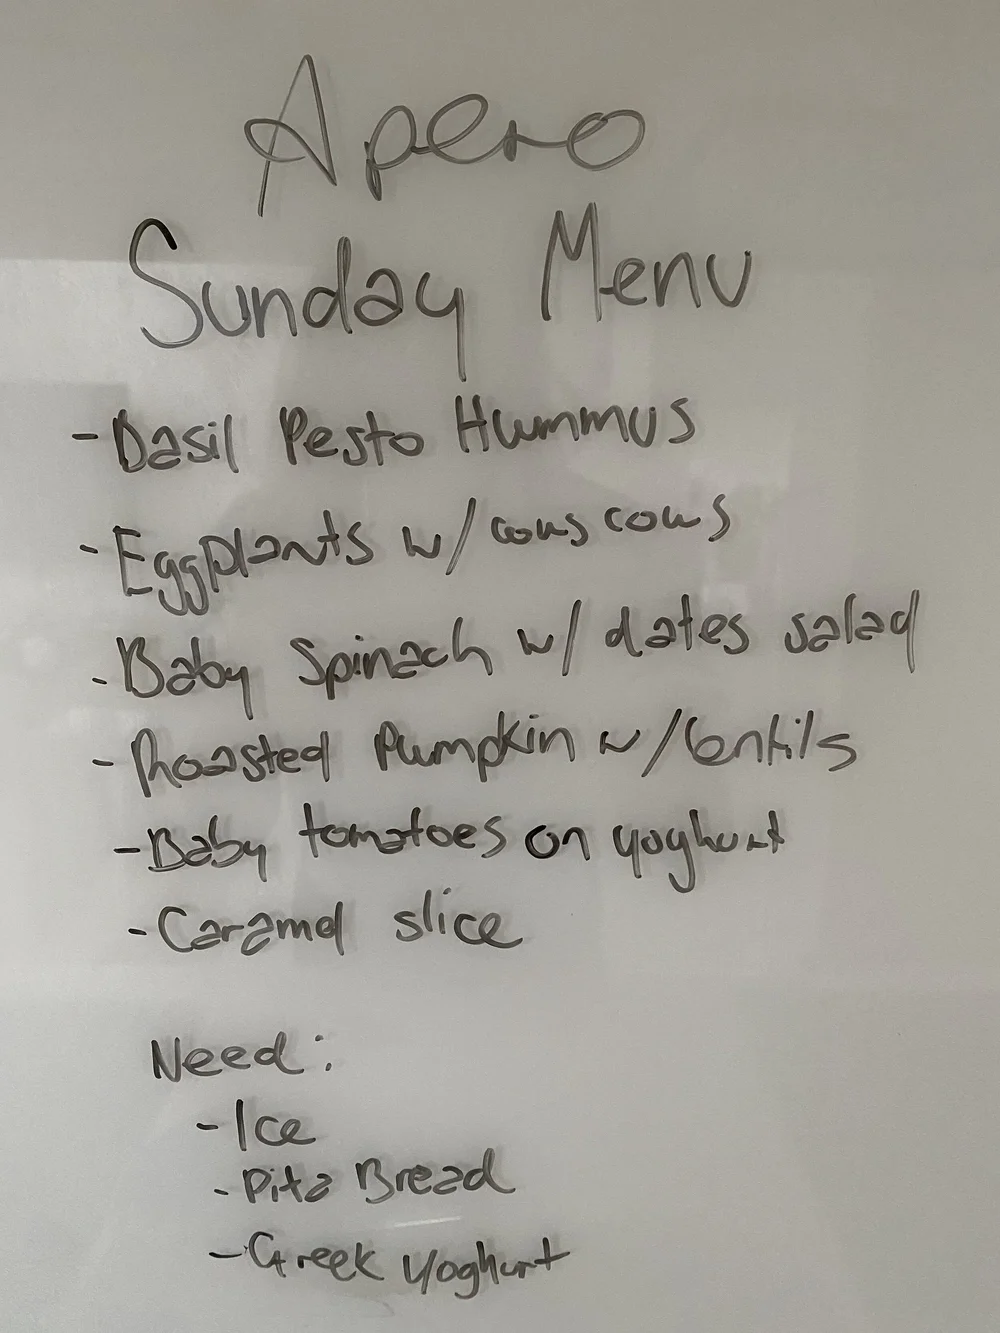 Apero
Sunday Menu
- Basil Pesto Hummus
- Eggplants w/ cous cous
- Baby Spinach w/ dates salad
- Roasted Pumpkin w/ lentils
- Baby tomatoes on yoghurt
- Caramel slice
Need:
- Ice
- Pita Bread
- Greek Yoghurt